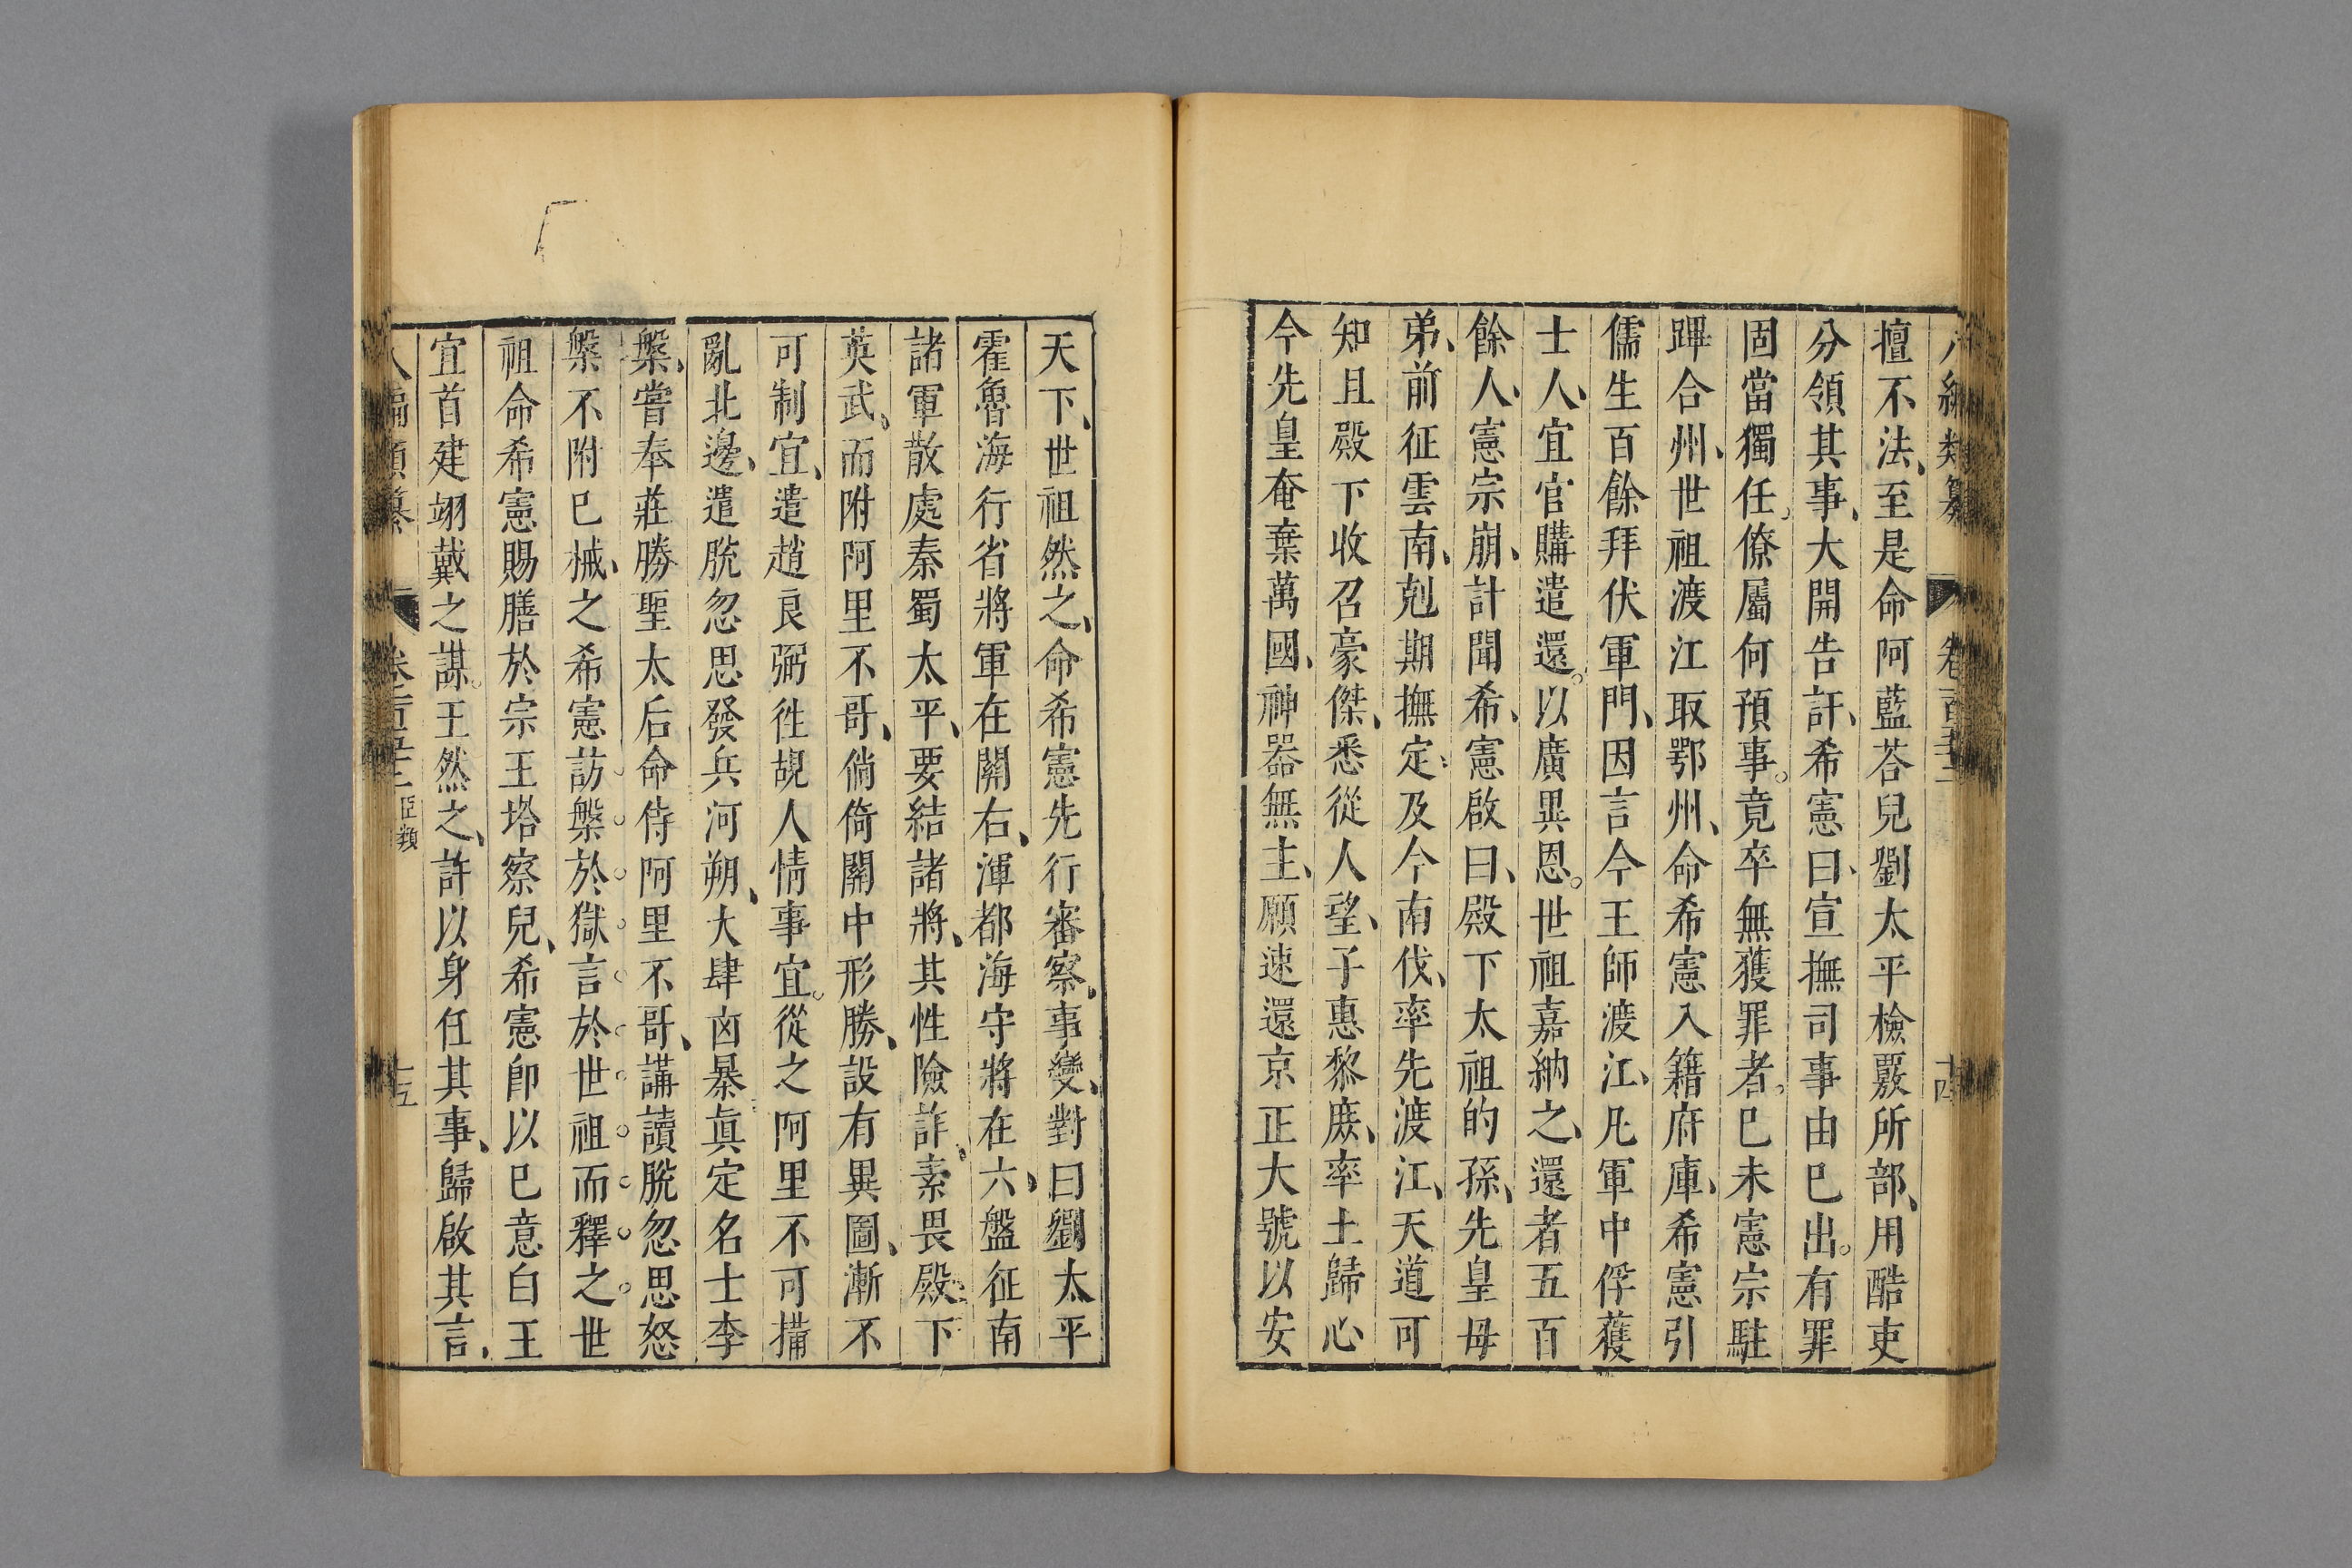 擅不法、至是命阿藍荅兒劉太平檢覈所部、用酷吏
分領其事、大開告訐、希憲曰、宣撫司事由巳出。有罪
固當獨任。僚屬何預事。竟卒無獲罪者。巳未憲宗駐
蹕合州、世祖渡江取鄂州、命希憲入籍府庫、希憲引
儒生百餘拜伏軍門、因言今王師渡江、凡軍中俘獲
士人、宜官購遣還。以廣異恩。世祖嘉納之、還者五百
餘人、憲宗崩、訃聞希、憲啟曰、殿下太祖的孫、先皇母
弟、前征雲南、剋期撫定、及今南伐、率先渡江、天道可
知且殿下收召豪傑、悉從人望、子惠黎庶、率土歸心
今先皇奄棄萬國、神器無主、願速還京正大號以安
天下、世祖然之、命希憲先行審察、事變、對曰劉太平
霍魯海行省將軍在關右、渾都海守將在六、盤征南
諸軍散處秦蜀太平、要結諸將、其性險詐、素畏殿下
英武、而附阿里不哥、倘倚關中形勝、設有異圖、漸不
可制宜、遣趙良弼徃覘人情事宜。從之阿里不可搆
亂北邊、遣脫忽思發兵河朔、大肆凶暴真定名士李
槃、嘗奉莊勝聖太后命侍阿里不哥、講讀脫忽思怒
槃不附巳械、之希憲訪槃於獄言於世祖而釋之世
祖命希憲賜膳於宗王塔察兒、希憲卽以巳意白王
宜首建翊戴之謀。王然之、許以身任其事、歸啟其言、
八編類纂
卷之一百五十二
臣類
十五